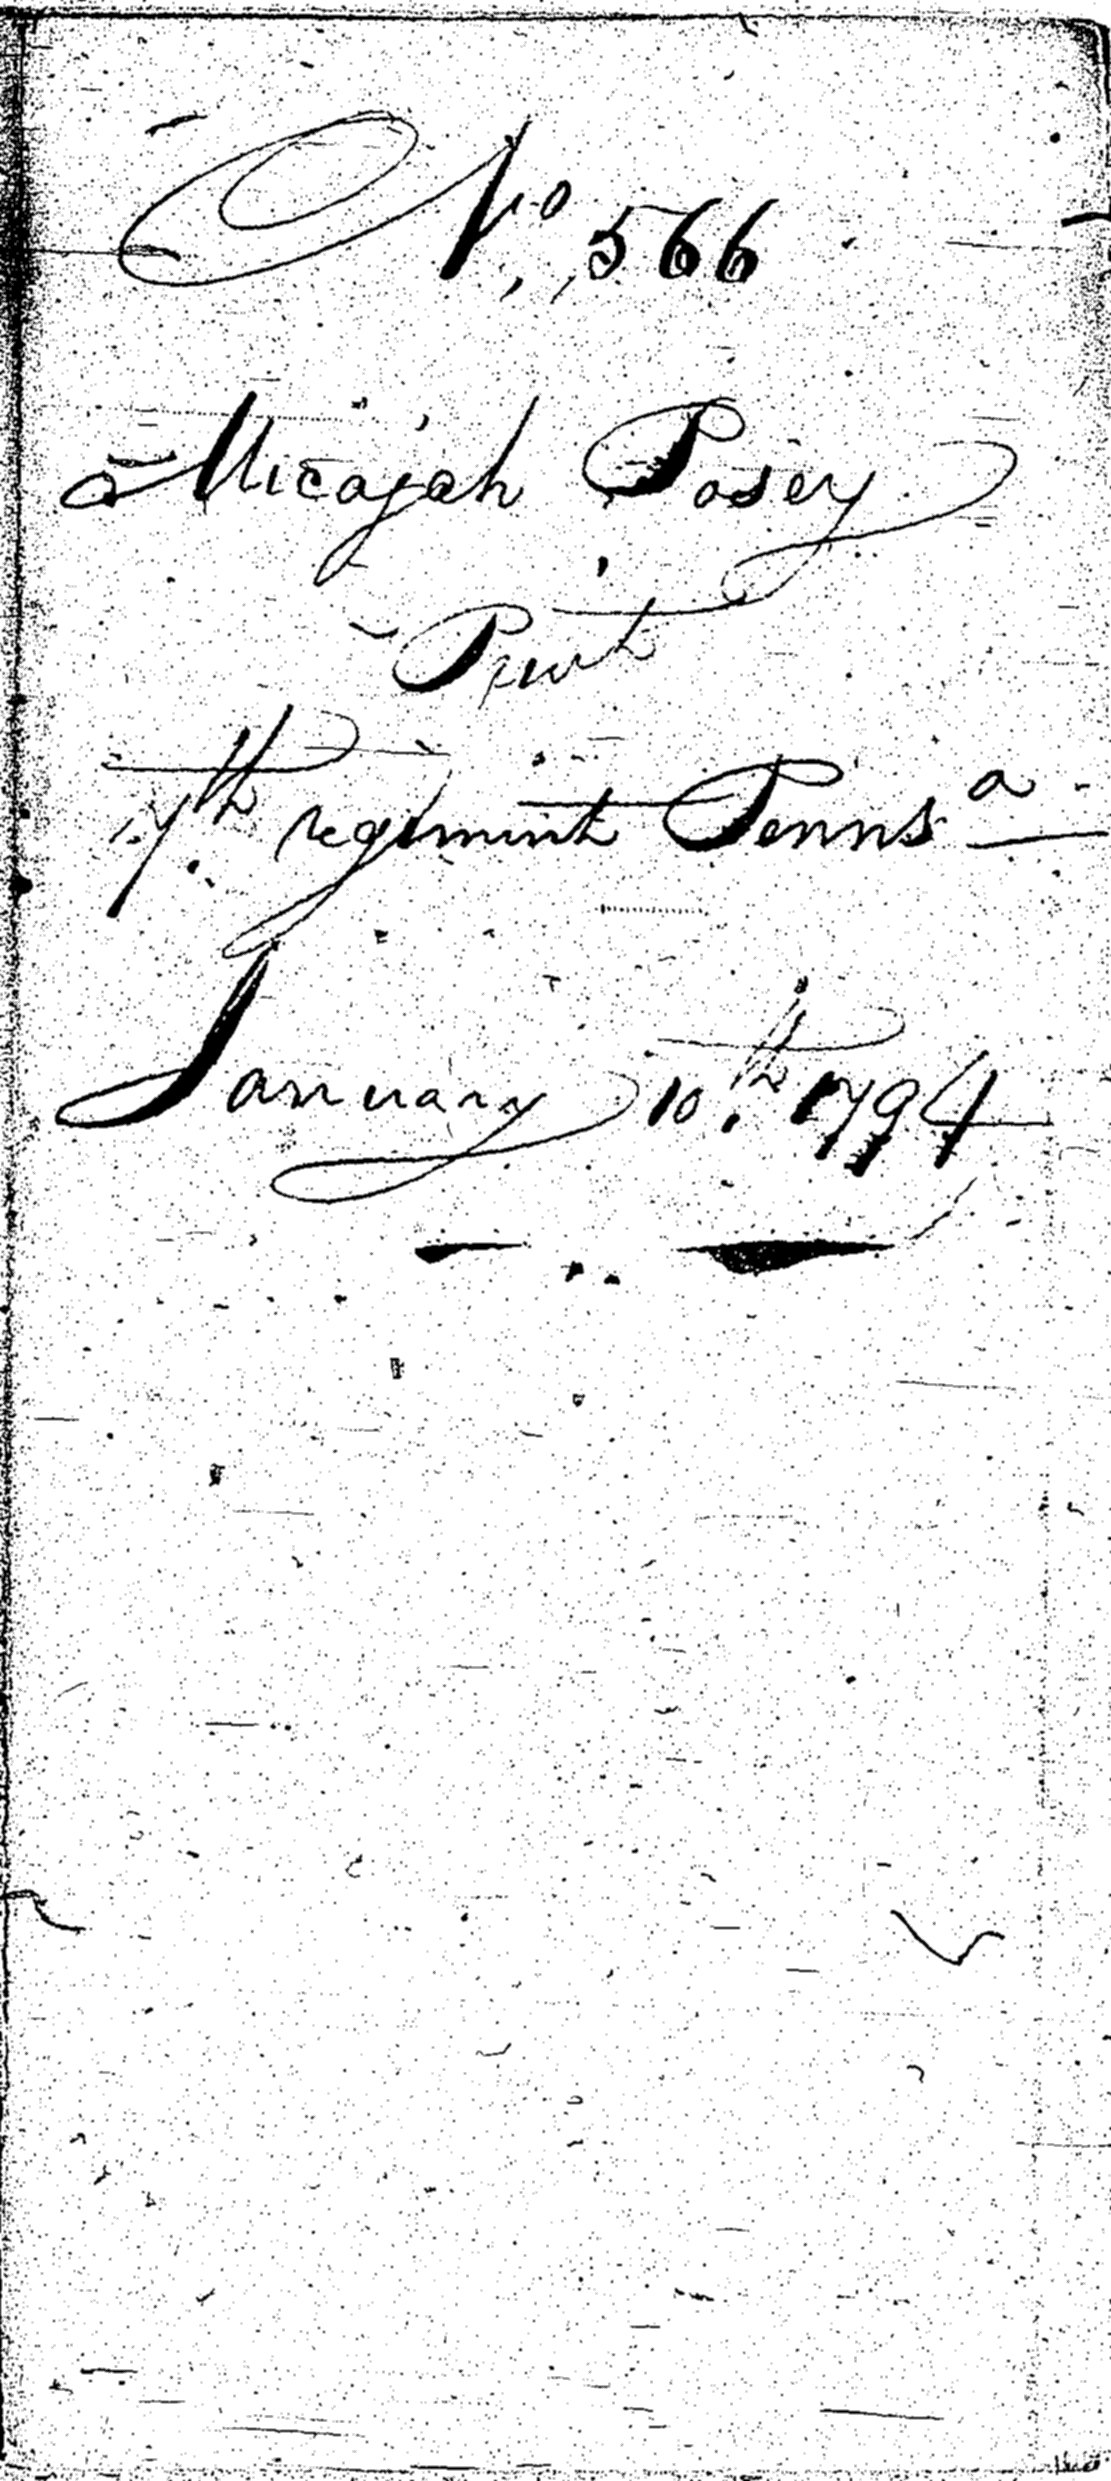 No. 566
Micajah Posey
Privt
7th regiment Pennsa
January 10th 1794